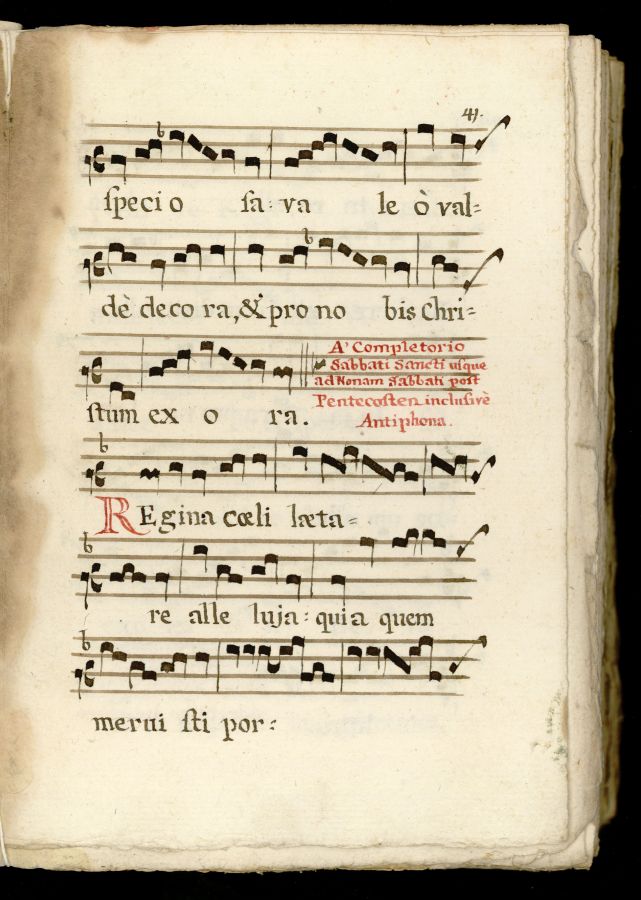 41.
ſpeci o ſa: va le ò val=
dè deco ra, & pro no bis Chri=
ſtum ex o ra.
A' Completorio
Sabbati Sancti uſque
ad Nonam Sabbati poſt
Pentecoſten incluſivè
Antiphona.
REgina cœli læta=
re alle luja: quia quem
merui ſti por: